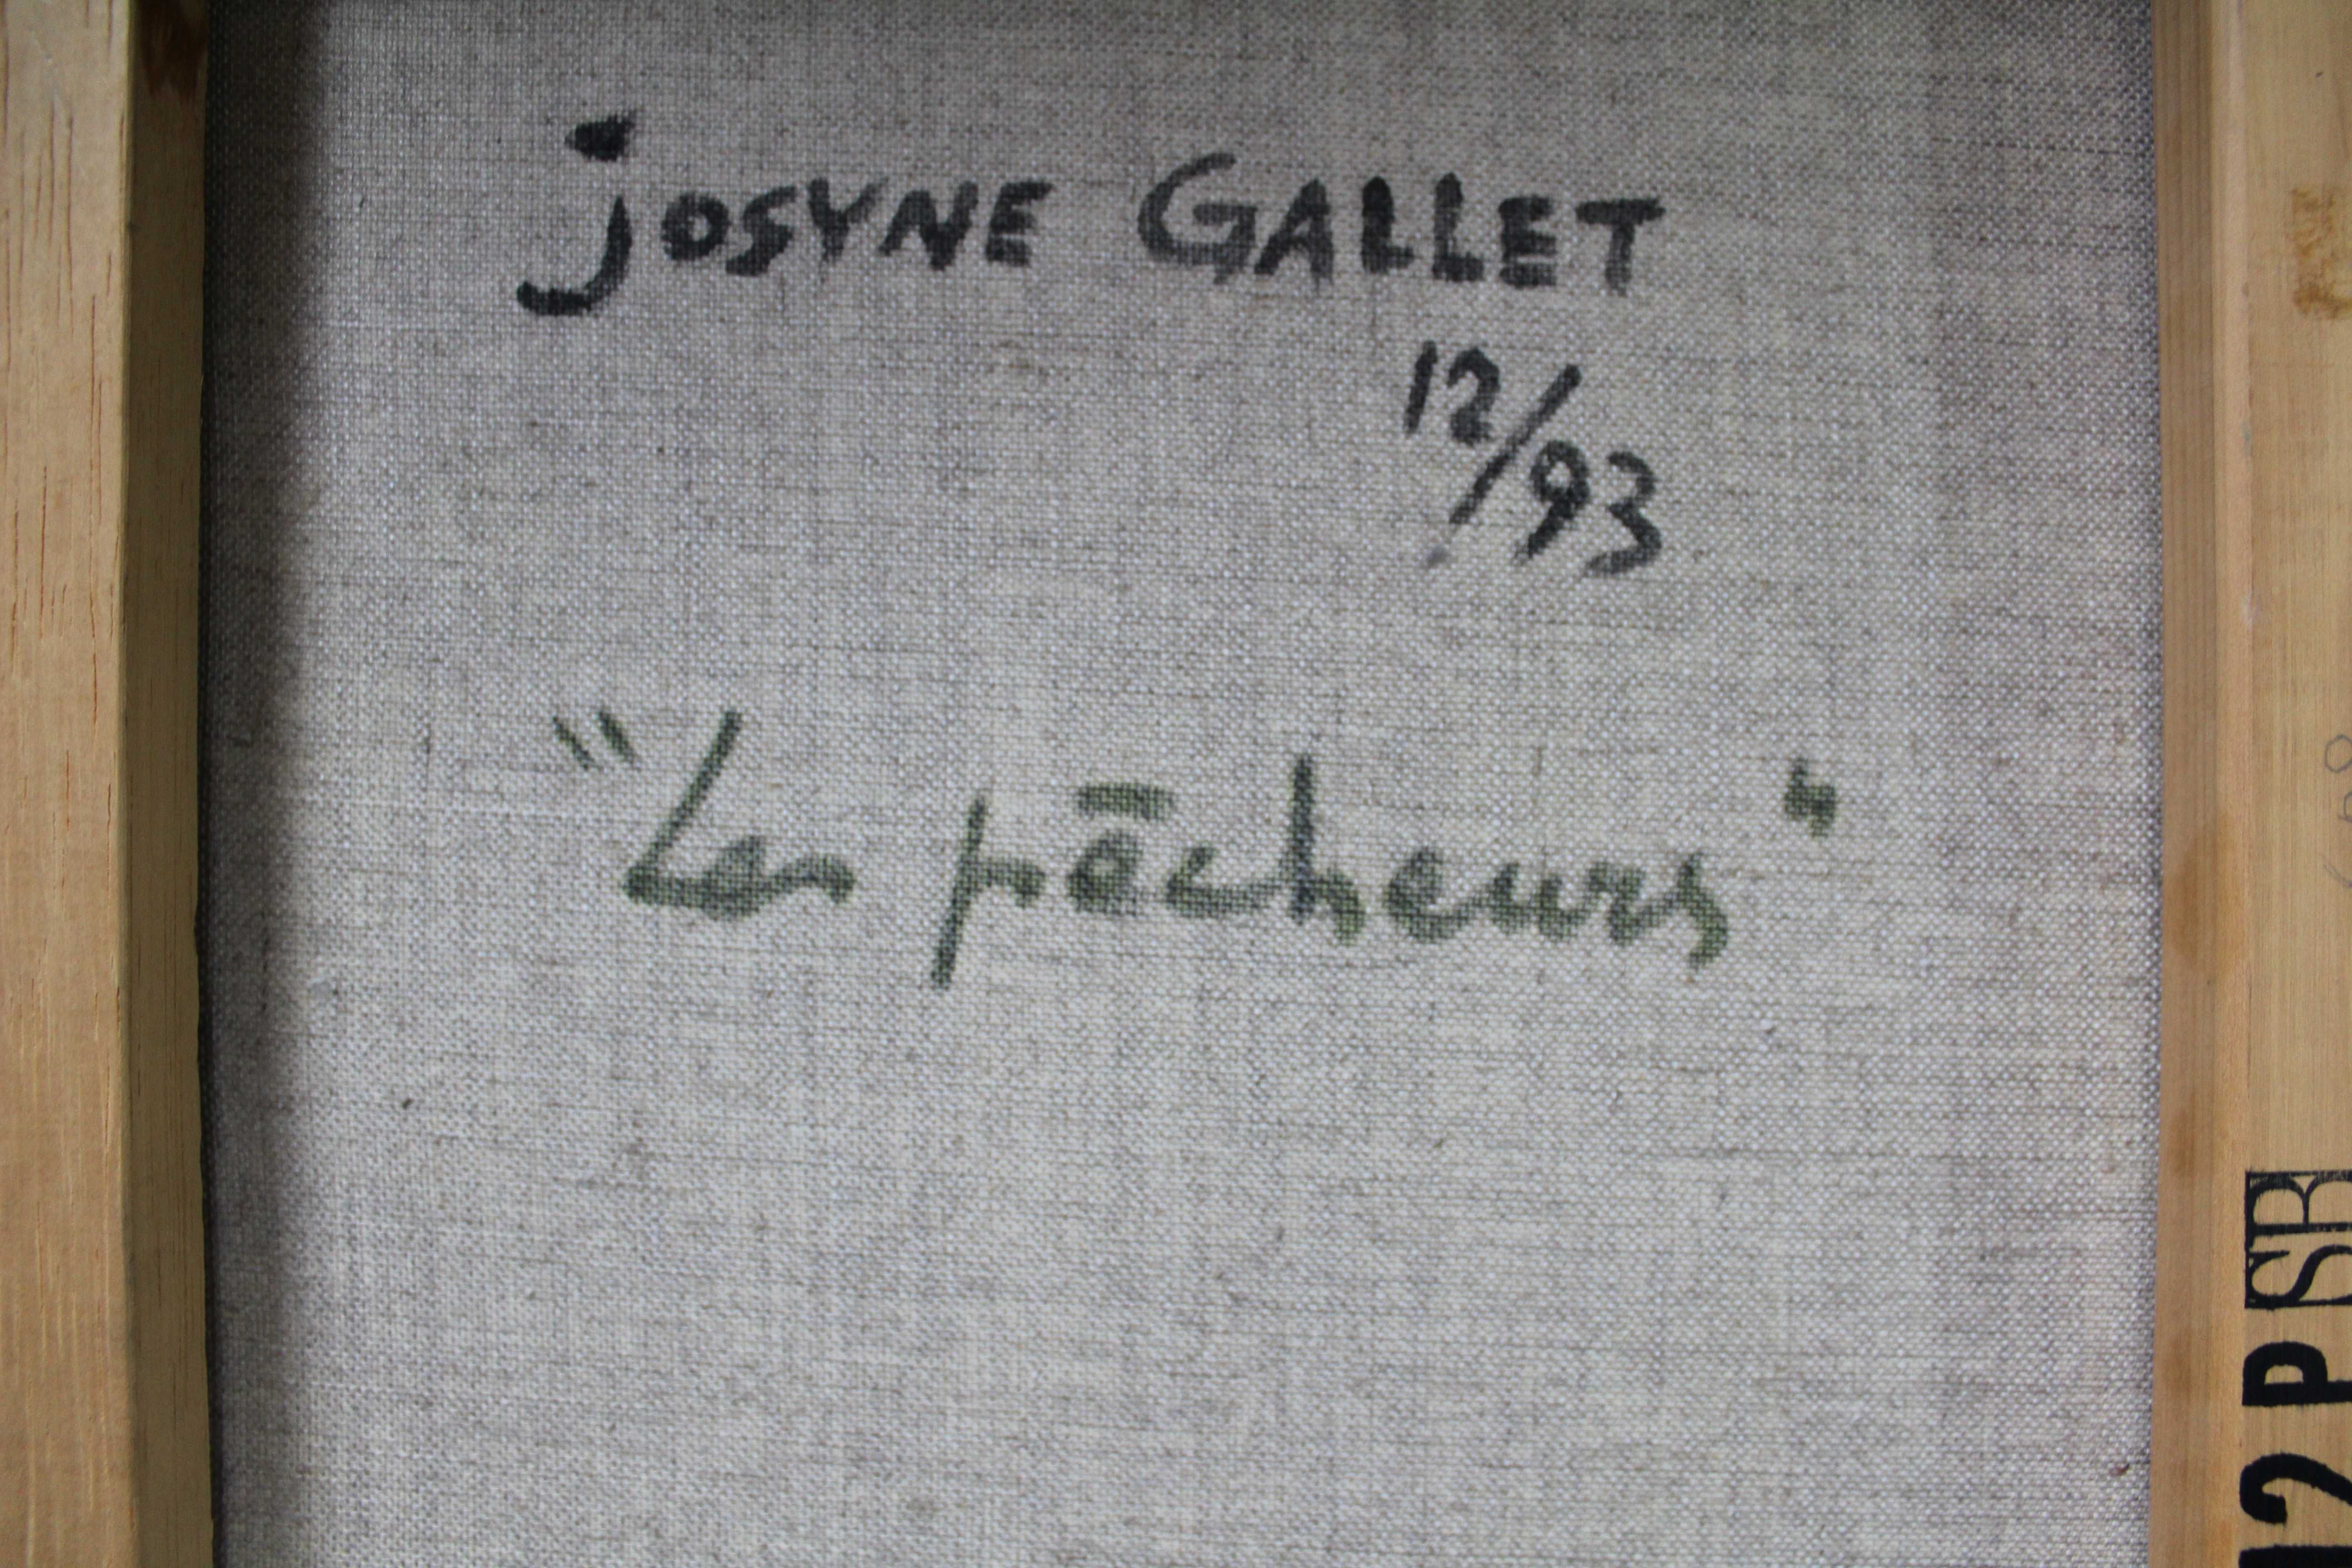 josyne GALLET
12/93
"Les pêcheurs"
12 P SB